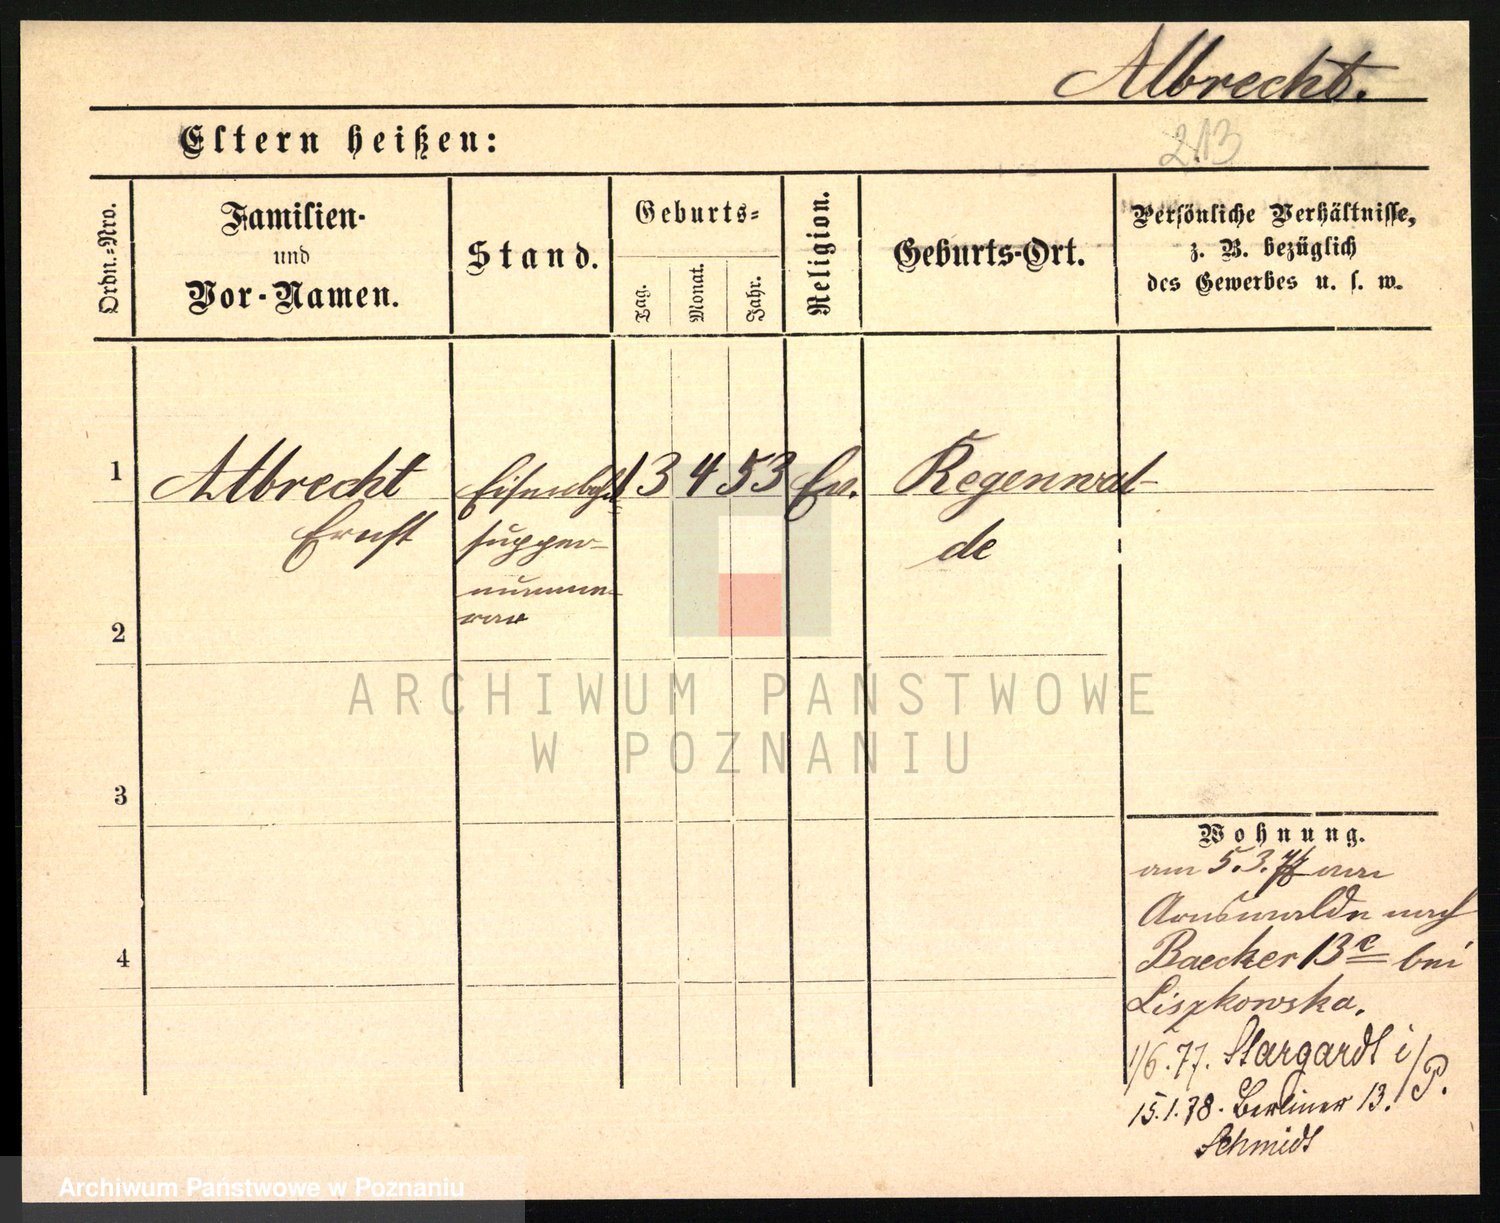 Albrecht.
Eltern heißen:
213
Ordn.-Nro.
Familien-
und
Vor-Namen.
Stand.
Geburts-
Tag.
Monat.
Jahr.
Religion.
Geburts-Ort.
Persönliche Verhältnisse,
z. B. bezüglich
des Gewerbes u. s. w.
1 Albrecht Eisenbahn 13 4 53 Ev. Regenwal-
Ernst supper- de
nume-
rar
2
ARCHIWUM PAŃSTWOWE
W POZNANIU
3
4
Wohnung.
am 5.3. von
Arnswalde nach
Baecker 13c bei
Liszkowska.
1/6.77. Stargardt i/P.
15.1.78. Berliner 13.
Schmidt
Archiwum Państwowe w Poznaniu